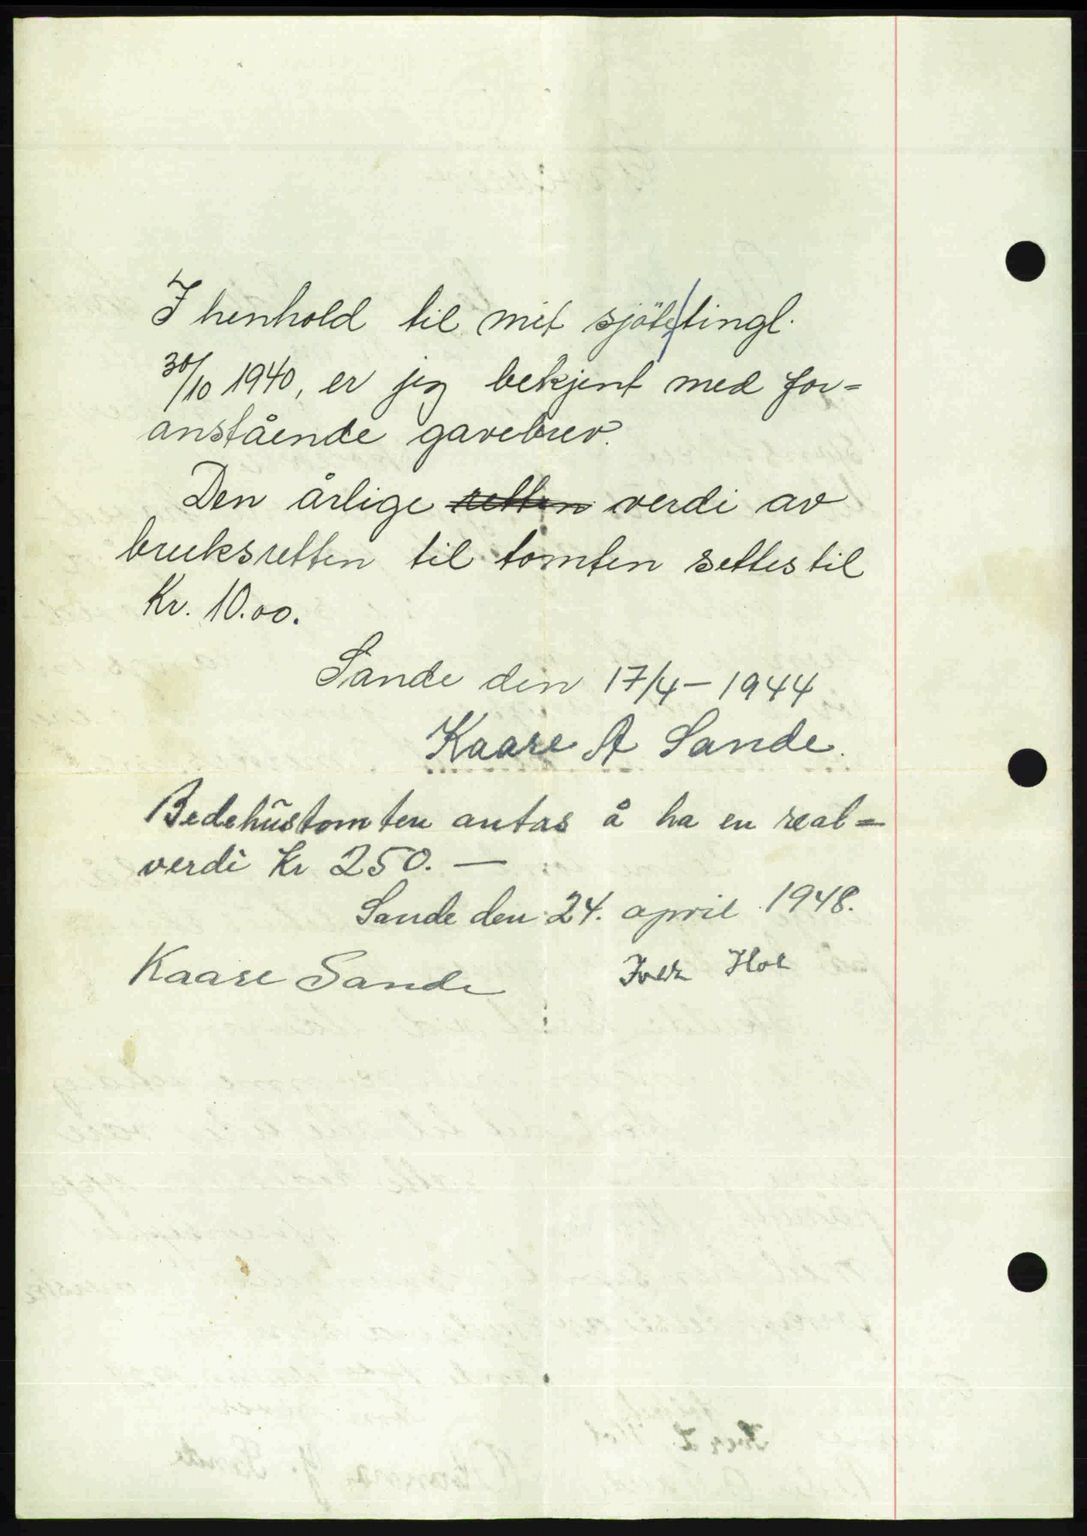 I henhold til mit sjöte/tingl.
30/10 1940, er jeg bekjent med for=
anstående gavebrev.
Den årlige retten verdi av
bruksretten til tomten settes til
Kr. 10.00.
Sande den 17/4 - 1944
Kaare A Sande.
Bedehustomten antas å ha en real=
verdi Kr 250. —
Sande den 24. april 1948.
Kaare Sande Hol